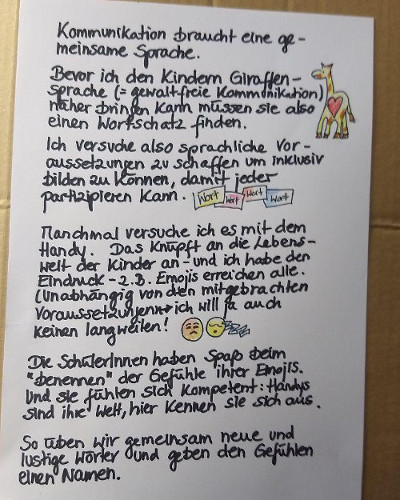 Kommunikation braucht eine ge-
meinsame Sprache.
Bevor ich den Kindern Giraffen-
sprache (= gewalt-freie Kommunikation)
näher bringen kann müssen sie also
einen Wortschatz finden.
Ich versuche also sprachliche Vor-
aussetzungen zu schaffen um inklusiv
bilden zu können, damit jeder
partizipieren kann.
Wort Wort Wort Wort
Manchmal versuche ich es mit dem
Handy. Das knüpft an die Lebens-
welt der Kinder an - und ich habe den
Eindruck - z.B. Emojis erreichen alle.
(Unabhängig von den mitgebrachten
Voraussetzungen → ich will ja auch
keinen langweilen!
Die SchülerInnen haben Spaß beim
"benennen" der Gefühle ihrer Emojis.
Und sie fühlen sich kompetent: Handys
sind ihre Welt, hier kennen sie sich aus.
So üben wir gemeinsam neue und
lustige Wörter und geben den Gefühlen
einen Namen.